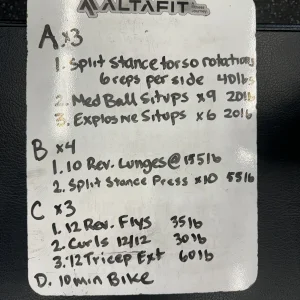 ALTAFIT
A x3
1. Split Stance torso rotations
6 reps per side 40lbs
2. Med Ball Situps x9 20lb
3. Explosive Situps x6 20lb
B x4
1. 10 Rev. Lunges @ 155lb
2. Split Stance Press x10 55lb
C x3
1. 12 Rev. Flys 35lb
2. Curls 12/12 30lb
3. 12 Tricep Ext 60lb
D. 10 min Bike